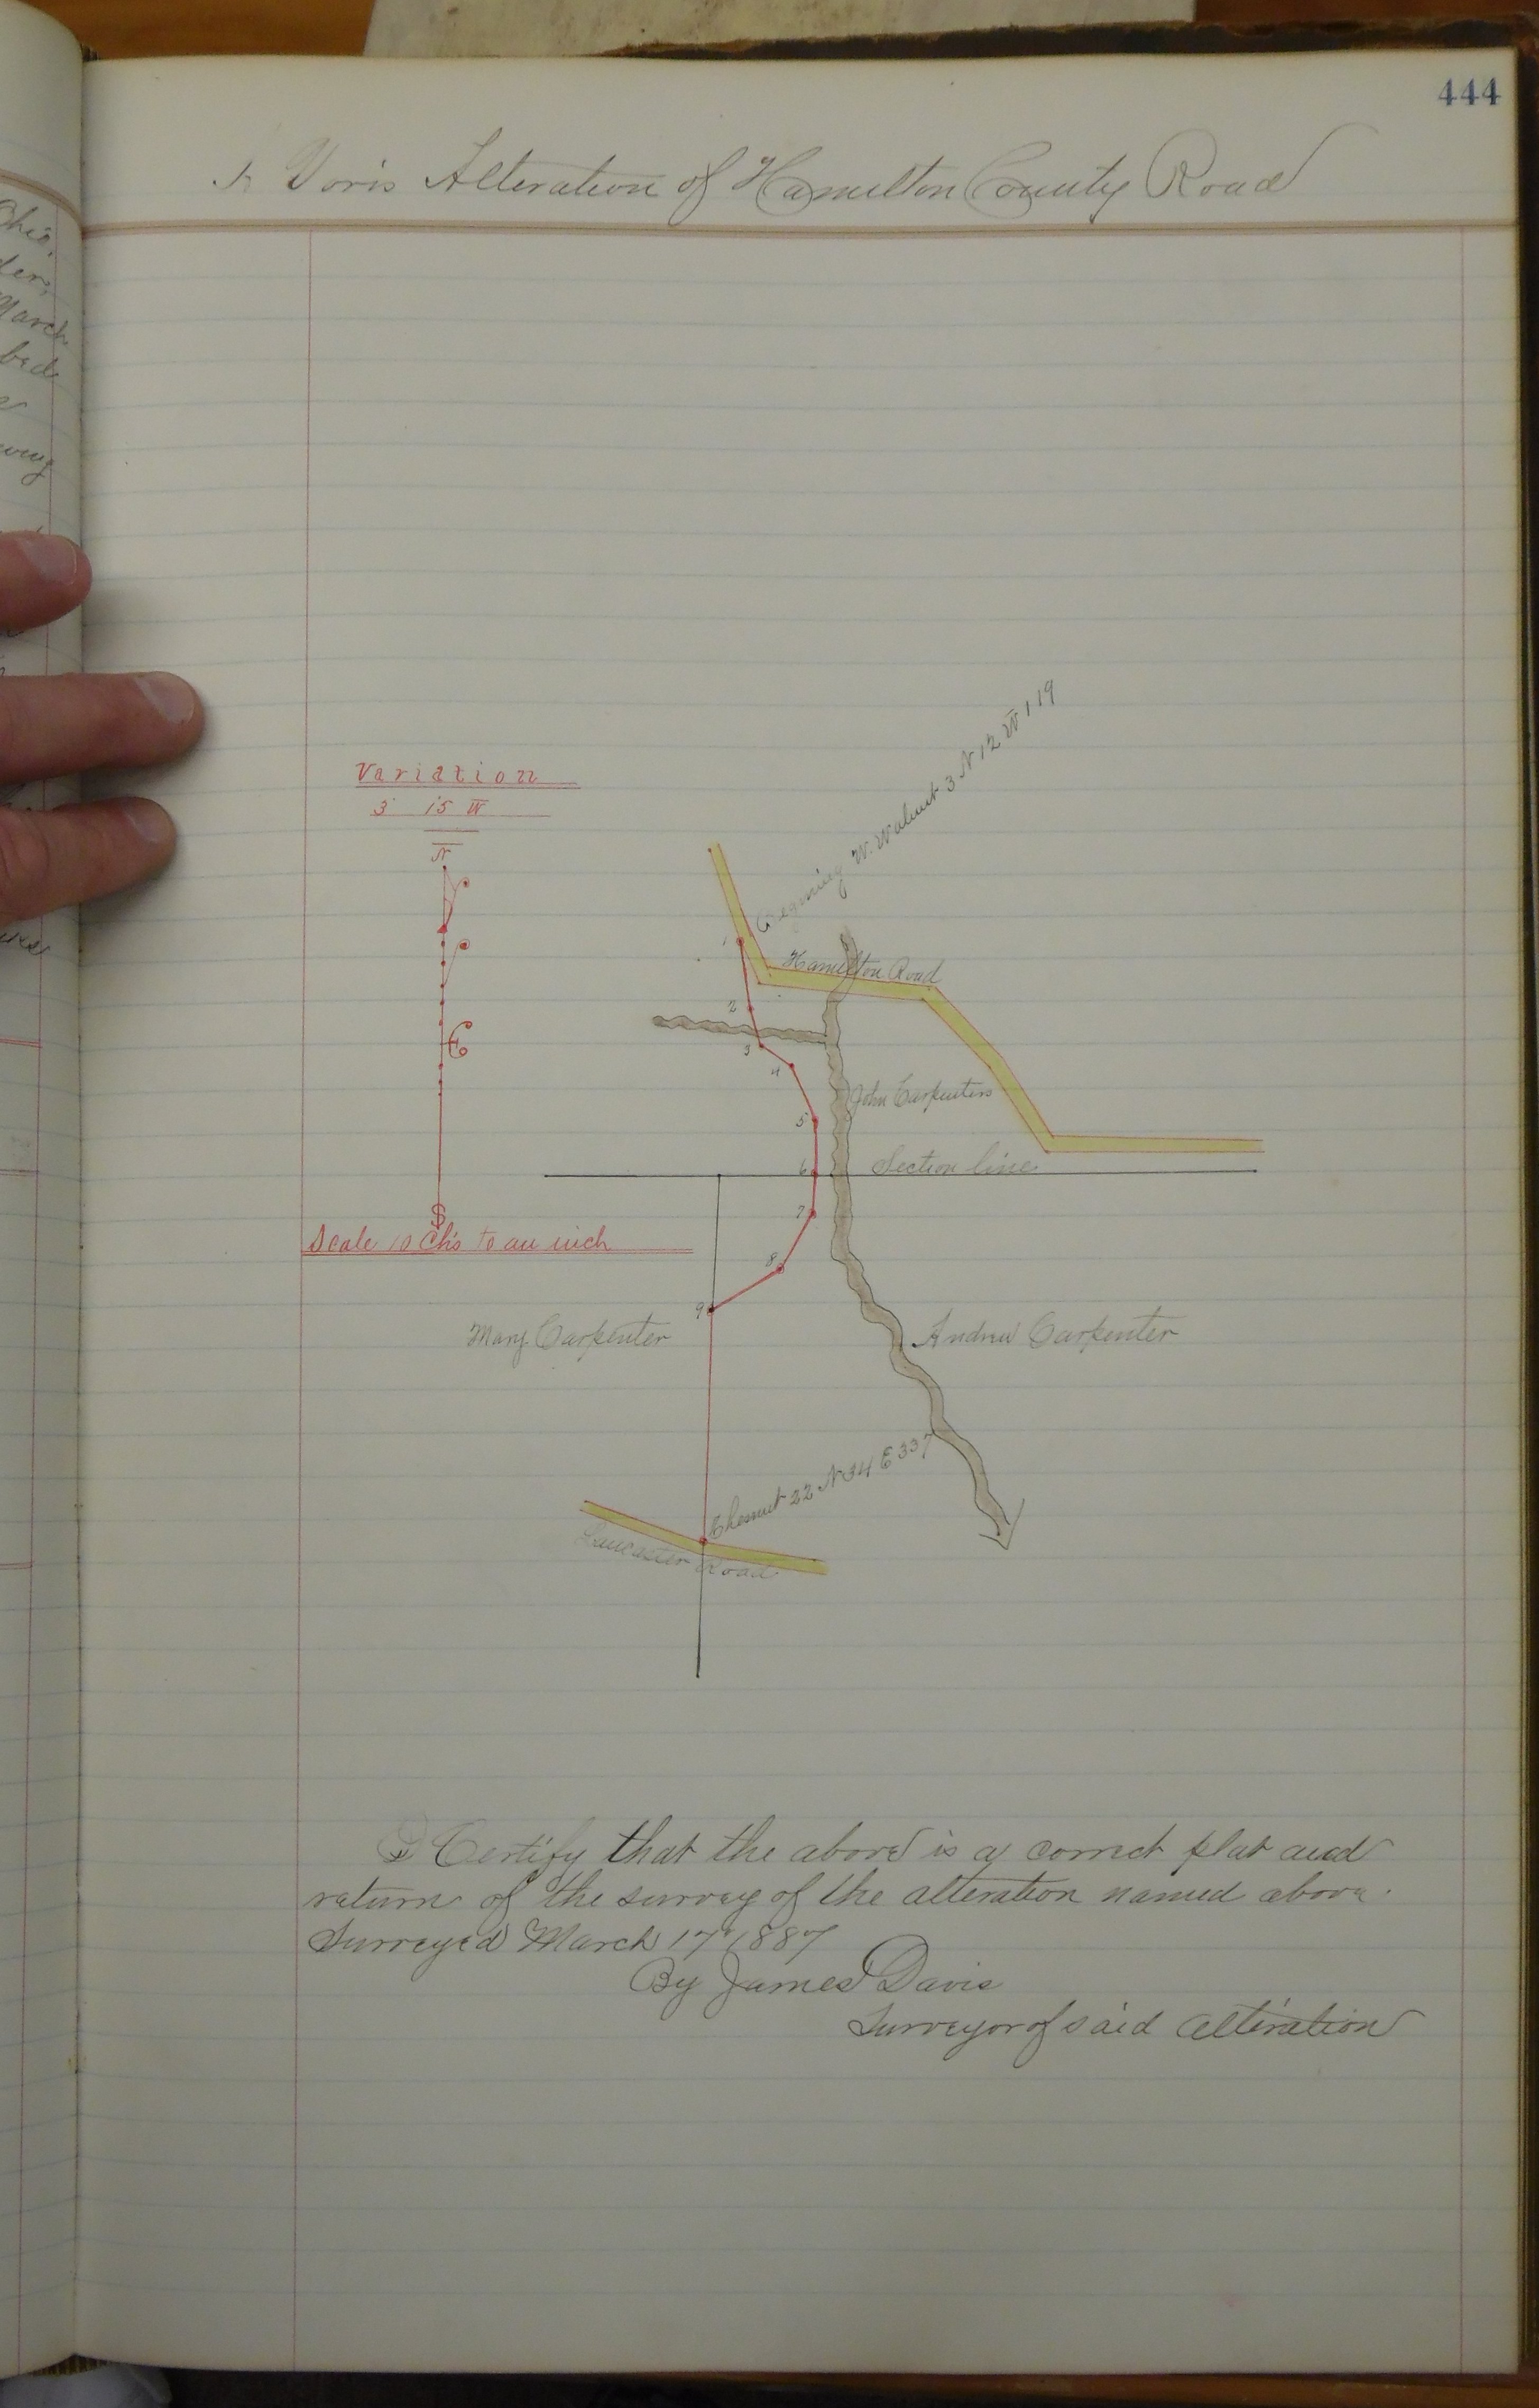 444
Voris Alteration of Hamilton County Road
Ohio,
March
Variation
3 15 W
N
Beginning W. Walnut 3 N 12 W 119
1
Hamilton Road
2
3
4
John Carpenters
5
6
Section line
7
S
Scale 10 Ch's to an inch
8
9
Mary Carpenter
Andrew Carpenter
Chesnut 22 N 34 E 337
Lancaster Road
I Certify that the above is a correct plat and
return of the survey of the alteration named above.
Surveyed March 17" 1887
By James Davis
Surveyor of said alteration